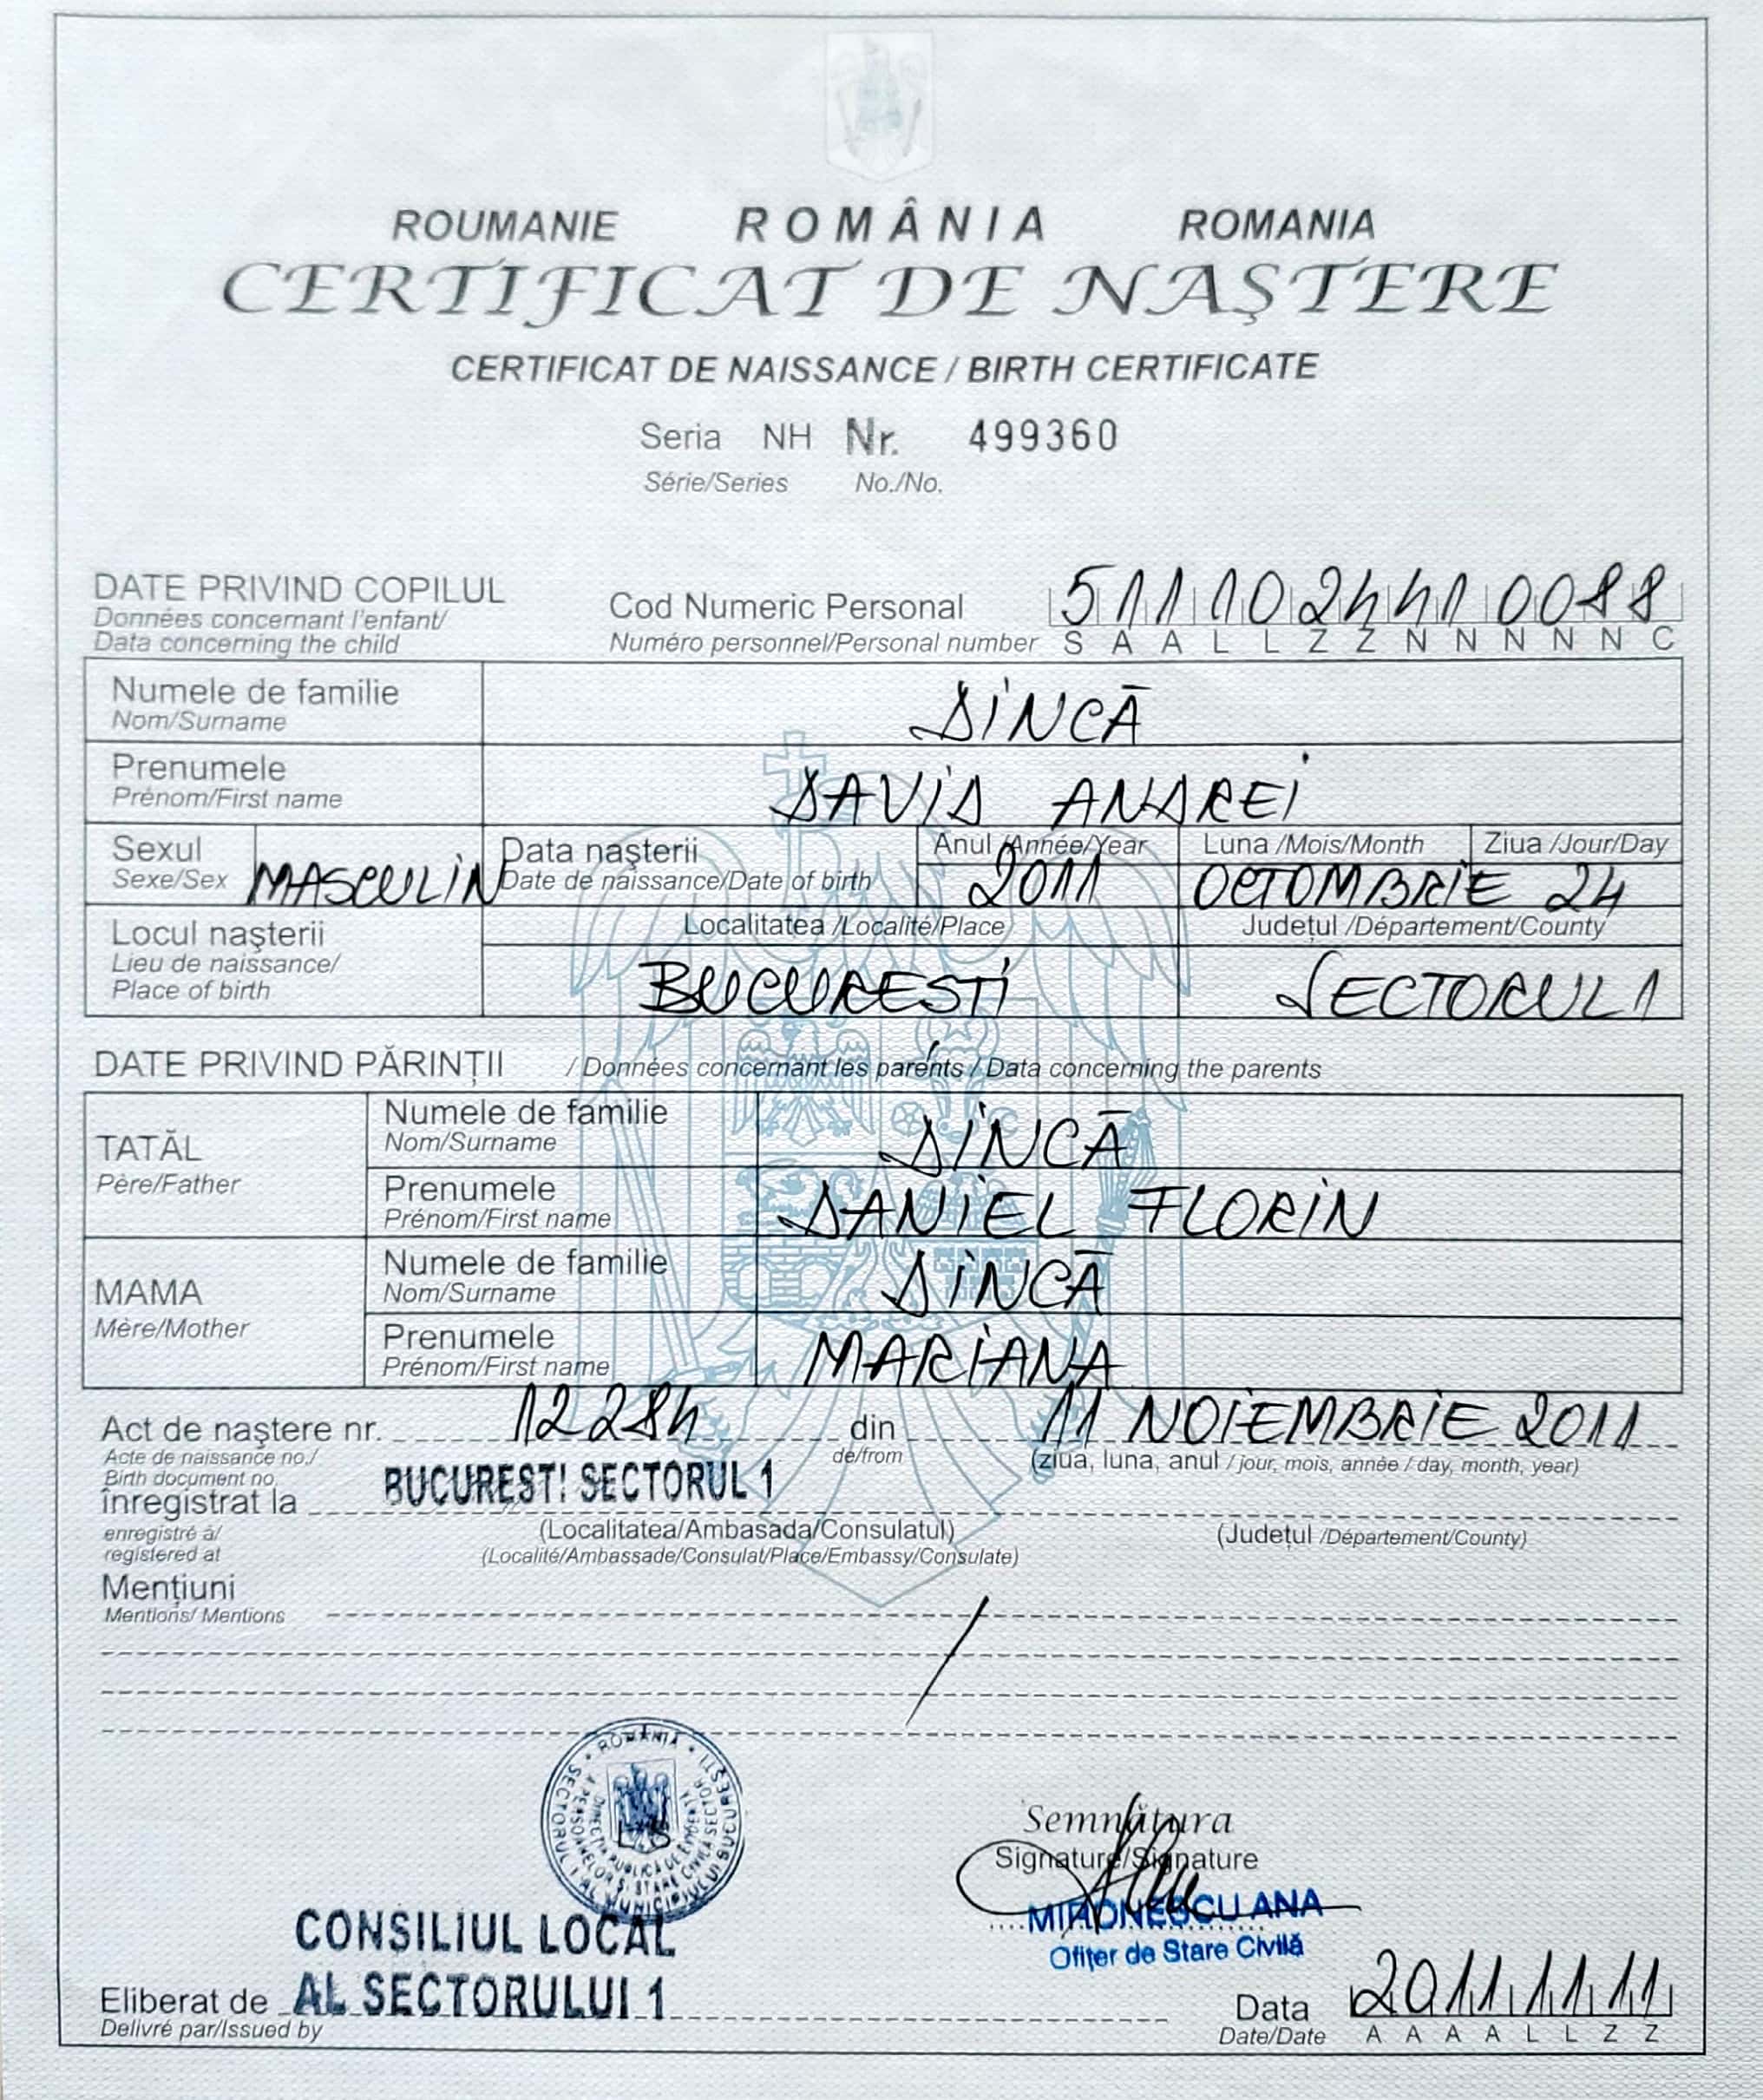 ROUMANIE ROMÂNIA ROMANIA
CERTIFICAT DE NAŞTERE
CERTIFICAT DE NAISSANCE / BIRTH CERTIFICATE
Seria NH Nr. 499360
Série/Series No./No.
DATE PRIVIND COPILUL
Données concernant l'enfant/
Data concerning the child
Cod Numeric Personal 5111024410088
Numéro personnel/Personal number S A A L L Z Z N N N N N C
Numele de familie DINCĂ
Nom/Surname
Prenumele DAVID ANDREI
Prénom/First name
Sexul MASCULIN
Sexe/Sex
Data naşterii
Date de naissance/Date of birth
Anul /Année/Year Luna /Mois/Month Ziua /Jour/Day
2011 OCTOMBRIE 24
Locul naşterii
Lieu de naissance/
Place of birth
Localitatea /Localité/Place Judeţul /Département/County
BUCURESTI SECTORUL 1
DATE PRIVIND PĂRINŢII / Données concernant les parents / Data concerning the parents
TATĂL
Père/Father
Numele de familie DINCĂ
Nom/Surname
Prenumele DANIEL FLORIN
Prénom/First name
MAMA
Mère/Mother
Numele de familie DINCĂ
Nom/Surname
Prenumele MARIANA
Prénom/First name
Act de naştere nr. 12284 din 11 NOIEMBRIE 2011
Acte de naissance no./ de/from (ziua, luna, anul / jour, mois, année / day, month, year)
Birth document no.
înregistrat la BUCUREST! SECTORUL 1
enregistré à/ (Localitatea/Ambasada/Consulatul) (Judeţul /Département/County)
registered at (Localité/Ambassade/Consulat/Place/Embassy/Consulate)
Menţiuni
Mentions/ Mentions
ROMÂNIA
SECTORUL 1 AL MUNICIPIULUI BUCUREŞTI
L S
Semnătura
Signature/Signature
MIRONESCU ANA
Ofiţer de Stare Civilă
CONSILIUL LOCAL
Eliberat de AL SECTORULUI 1
Délivré par/Issued by
Data 2011 11 11
Date/Date A A A A L L Z Z